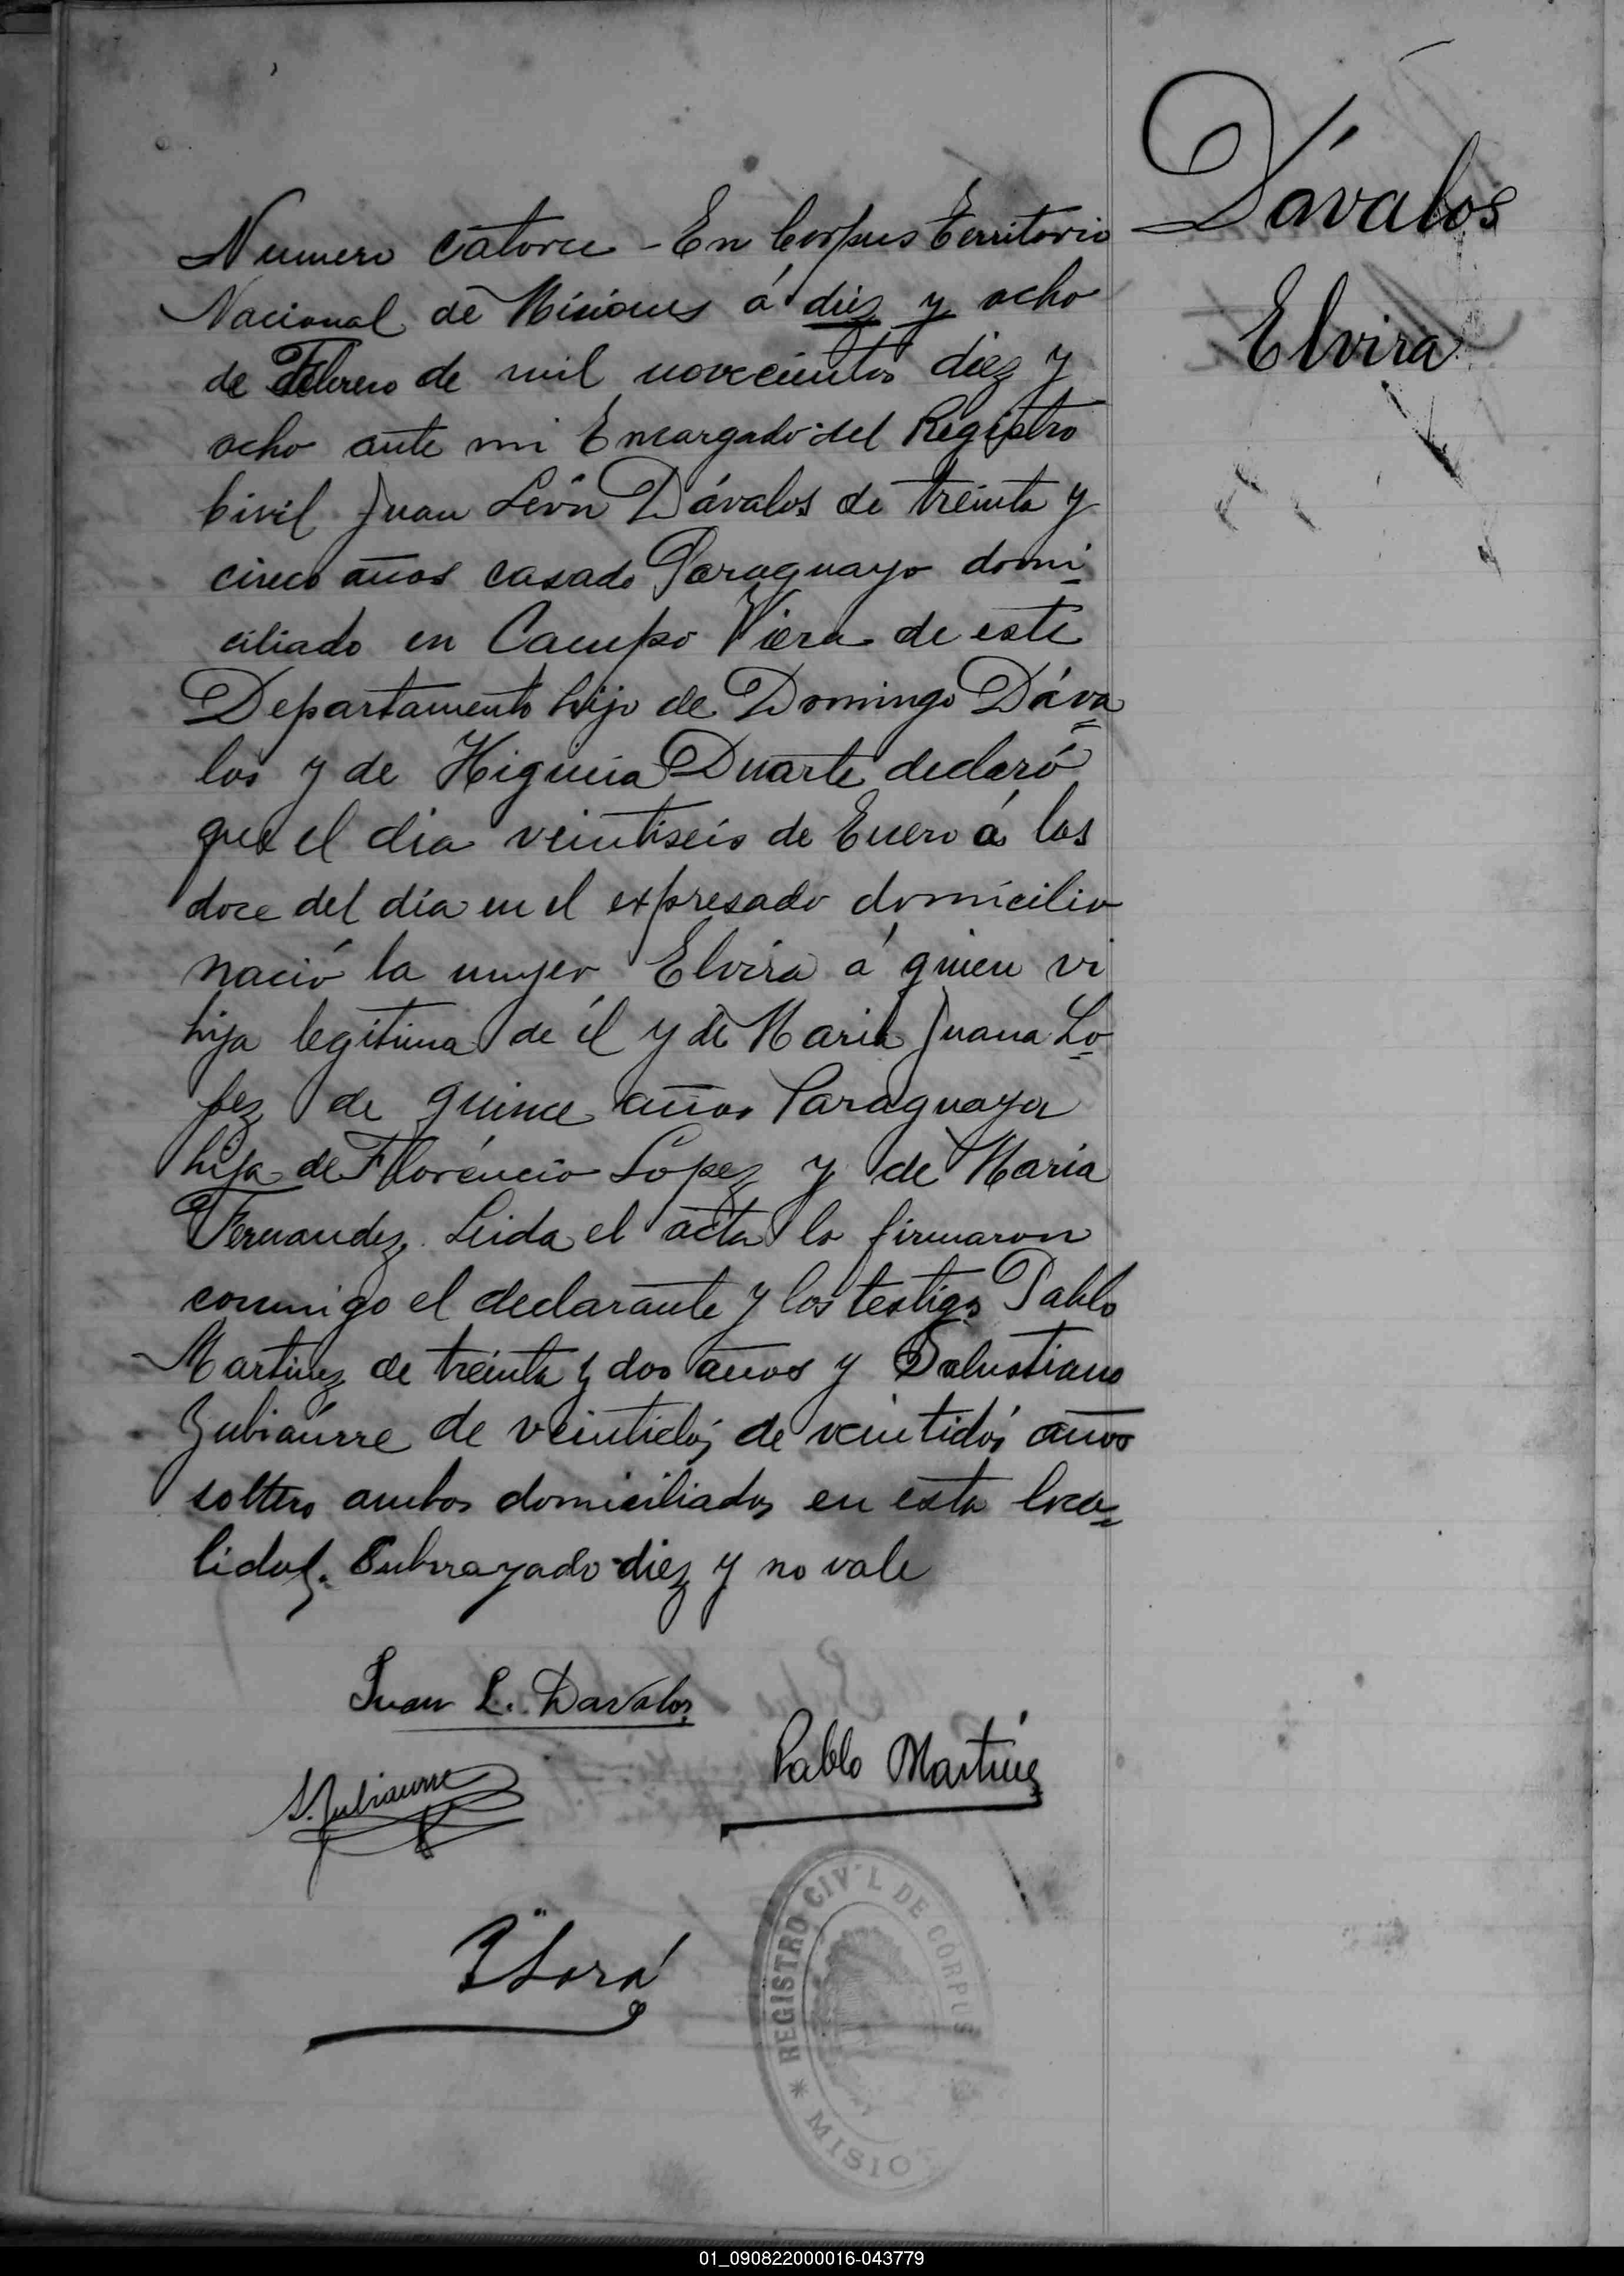 Dávalos
Elvira
Numero catorce - En Corpus Territorio
Nacional de Misiones á diez y ocho
de Febrero de mil novecientos diez y
ocho ante mi Encargado del Registro
Civil Juan León Dávalos de treinta y
cinco años casado Paraguayo domi-
ciliado en Campo Viera de este
Departamento hijo de Domingo Dáva=
los y de Higinia Duarte declaró
que el dia veintiseis de Enero á las
doce del día en el expresado domicilio
nació la mujer Elvira á quien vi
hija legítima de él y de Maria Juana Lo-
pez de quince años Paraguaya
hija de Florencio López y de Maria
Fernandez. Leida el acta la firmaron
conmigo el declarante y los testigos Pablo
Martinez de treinta y dos años y Salustiano
Zubiaurre de veintidós de veintidós años
soltero ambos domiciliados en esta loca=
lidad. Subrrayado diez y no vale
Juan L. Davalos
Pablo Martinez
S. Zubiaurre
REGISTRO CIVIL DE CORPUS
* MISIO
01_090822000016-043779